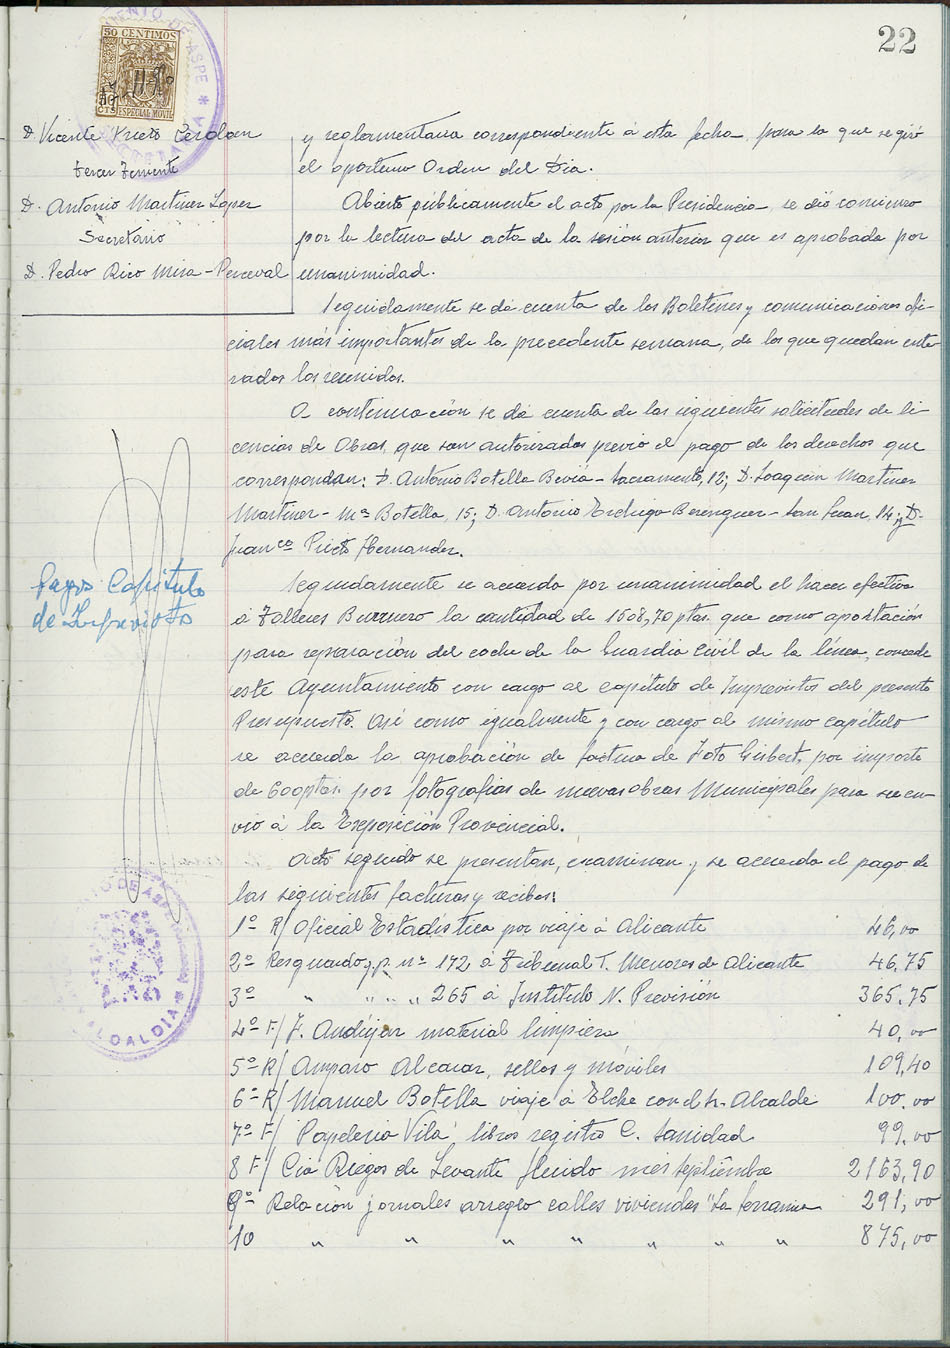 22
50 CENTIMOS
ESPECIAL MOVIL
D. Vicente Prieto Cerdan
tercer Teniente
D. Antonio Martinez Lopez
Secretario
D. Pedro Rico Mira-Perceval
y reglamentaria correspondiente á esta fecha, para la que se giró
el oportuno Orden del Dia.
Abierto públicamente el acto por la Presidencia, se dió comienzo
por la lectura del acta de la sesión anterior que es aprobada por
unanimidad.
Seguidamente se dá cuenta de los Boletines y comunicaciones ofi-
ciales más importantes de la precedente semana, de los que quedan ente-
rados los reunidos.
A continuación se dá cuenta de las siguientes solicitudes de li-
cencias de Obras, que son autorizadas previo el pago de los derechos que
correspondan: D. Antonio Botella Beviá - Sacramento, 12; D. Joaquin Martinez
Martinez - Mª Botella, 15; D. Antonio Berenguer - San Juan, 14; y D.
Franco Prieto Hernandez.
Pagos Capítulo
de Imprevistos
Seguidamente se acuerda por unanimidad el hacer efectiva
á Talleres la cantidad de 1508,70 ptas. que como aportación
para reparación del coche de la Guardia Civil de la línea, concede
este Ayuntamiento con cargo al capítulo de Imprevistos del presente
Presupuesto. Así como igualmente y con cargo al mismo capítulo
se acuerda la aprobación de factura de Foto Gisbert, por importe
de 600 ptas. por fotografias de nuevas obras Municipales para su en-
vio á la Exposición Provincial.
Acto seguido se presentan, examinan y se acuerda el pago de
las siguientes facturas y recibos:
1º R/ Oficial Estadistica por viaje á Alicante 46,00
2º Resguardo g.p. nº 172 á Tribunal T. Menores de Alicante 46,75
3º " " " " 265 á Instituto N. Previsión 365,75
4º F/ F. Andújar material limpieza 40,00
5º R/ Amparo Alcaraz, sellos y móviles 109,40
6º R/ Manuel Botella viaje á Elche con el Sr. Alcalde 100,00
7º F/ Papeleria Vila, libros registro C. Sanidad 99,00
8 F/ Cia Riegos de Levante fluido mes septiembre 2163,90
9º Relación jornales arreglo calles viviendas "La Serranica 291,00
10 " " " " " " " 875,00
ALCALDIA